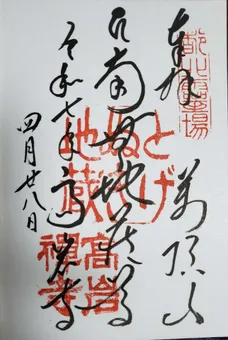 奉拝 萬頂山
南無地蔵尊
令和七年 高岩寺
四月廿八日
とげ
ぬき
地蔵
高岩
禅寺